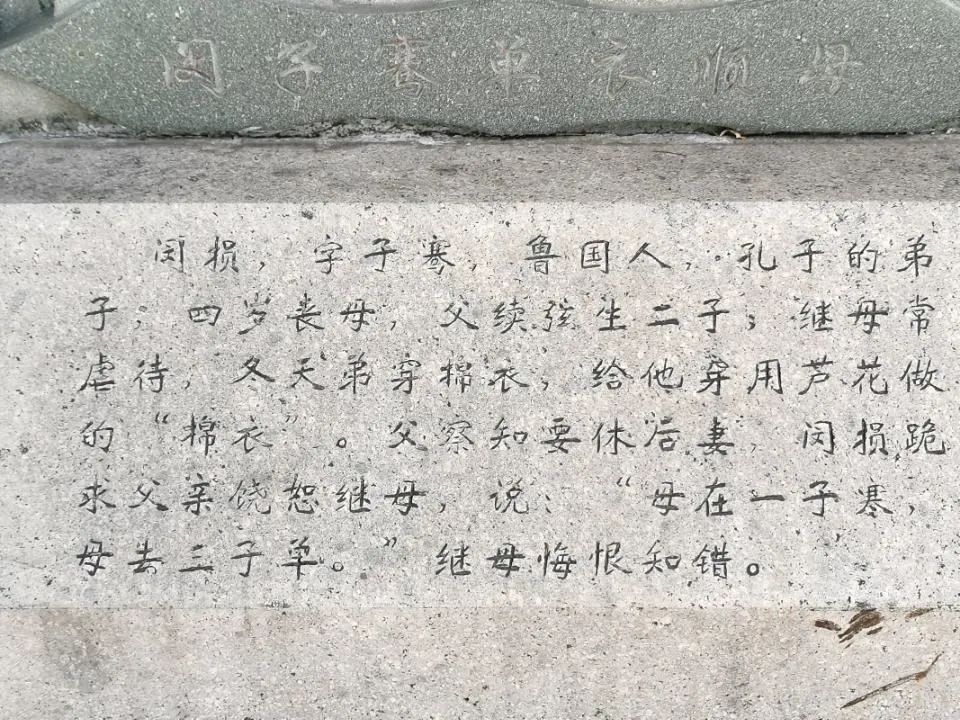 闵子骞单衣顺母
闵损，字子骞，鲁国人，孔子的弟
子，四岁丧母，父续弦生二子；继母常
虐待，冬天弟穿棉衣，给他穿用芦花做
的“棉衣”。父察知要休后妻，闵损跪
求父亲饶恕继母，说：“母在一子寒，
母去三子单。”继母悔恨知错。